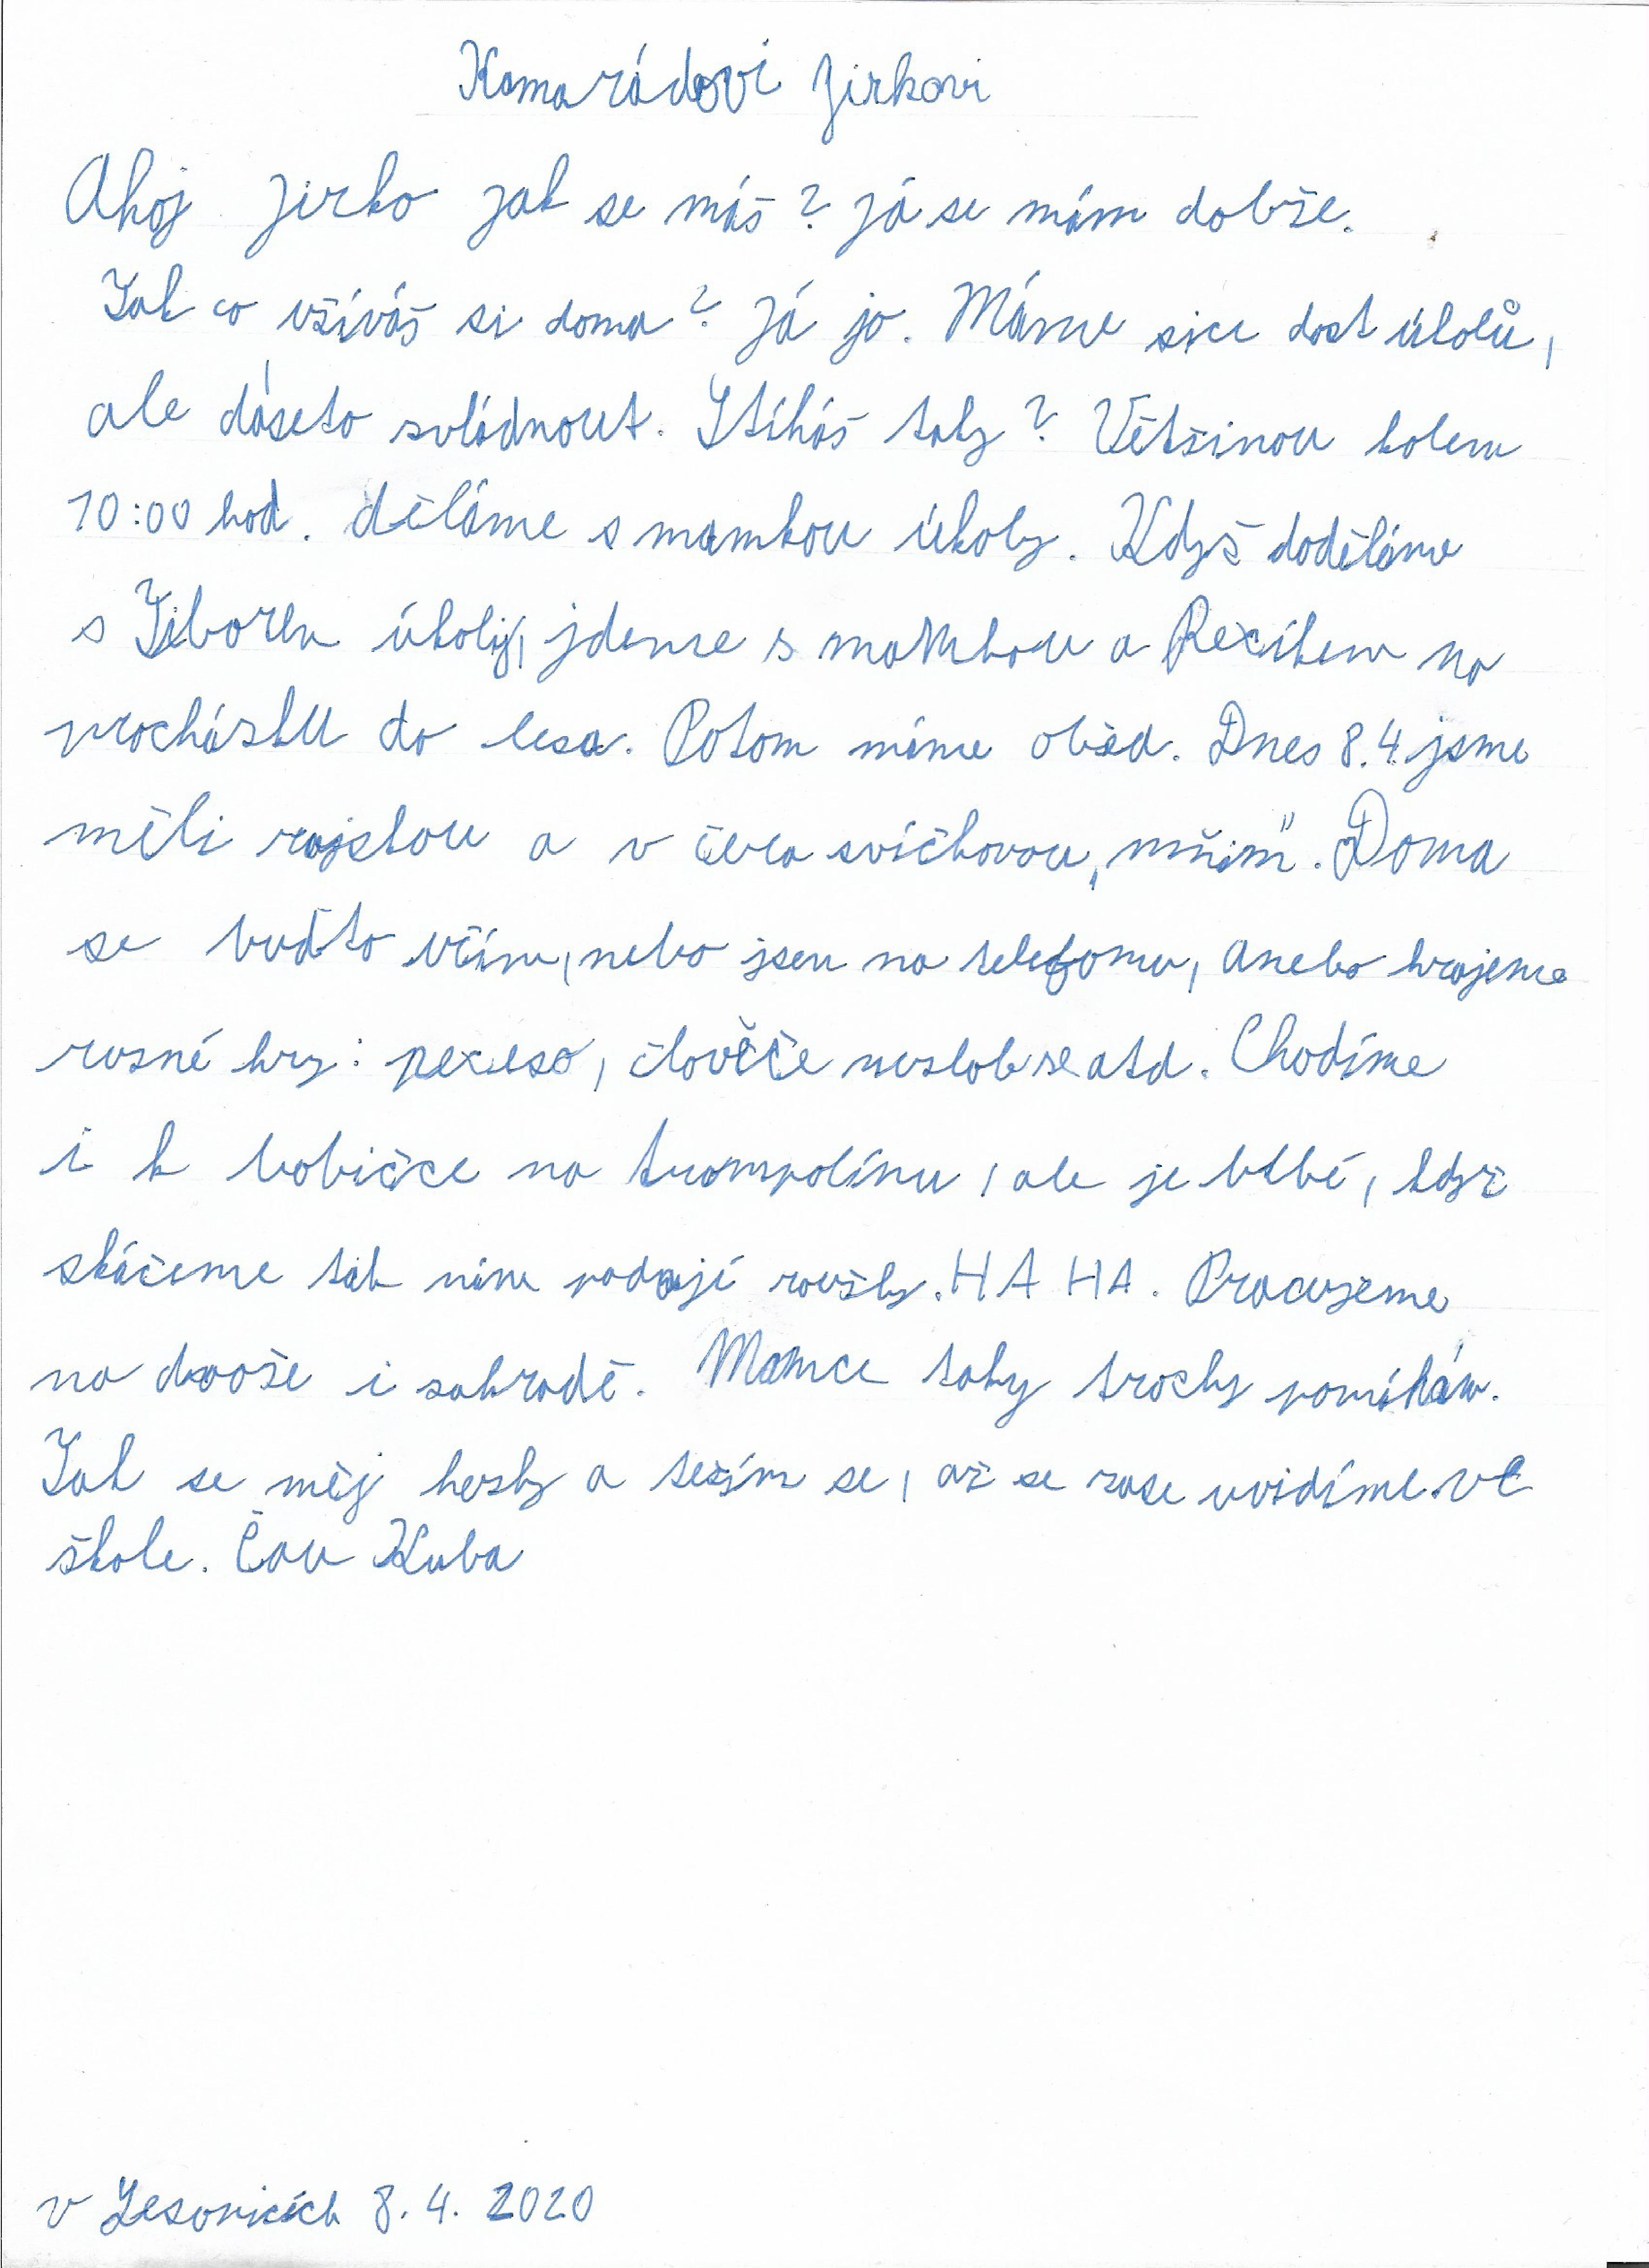 Kamarádovi Jirkovi
Ahoj Jirko jak se máš? Já se mám dobře.
Tak co užíváš si doma? Já jo. Máme sice dost úkolů,
ale dá se to zvládnout. Stíháš taky? Většinou kolem
10:00 hod. děláme s mamkou úkoly. Když doděláme
s Tiborem úkoly, jdeme s mamkou a Rexíkem na
procházku do lesa. Potom máme oběd. Dnes 8.4. jsme
měli rajskou a v čera svíčkovou, "mňam". Doma
se buďto učím, nebo jsem na telefonu, anebo hrajeme
rusné hry: pexeso, člověče nezlob se atd. Chodíme
i k babičce na trampolínu, ale je blbé, když
skáčeme tak nám padají roušky. HA HA. Pracujeme
na dvoře i zahradě. Mamce taky trochy pomáhám.
Tak se měj hezky a tešim se, až se zase uvidíme ve
škole. Čau Kuba
v Lesonicích 8. 4. 2020